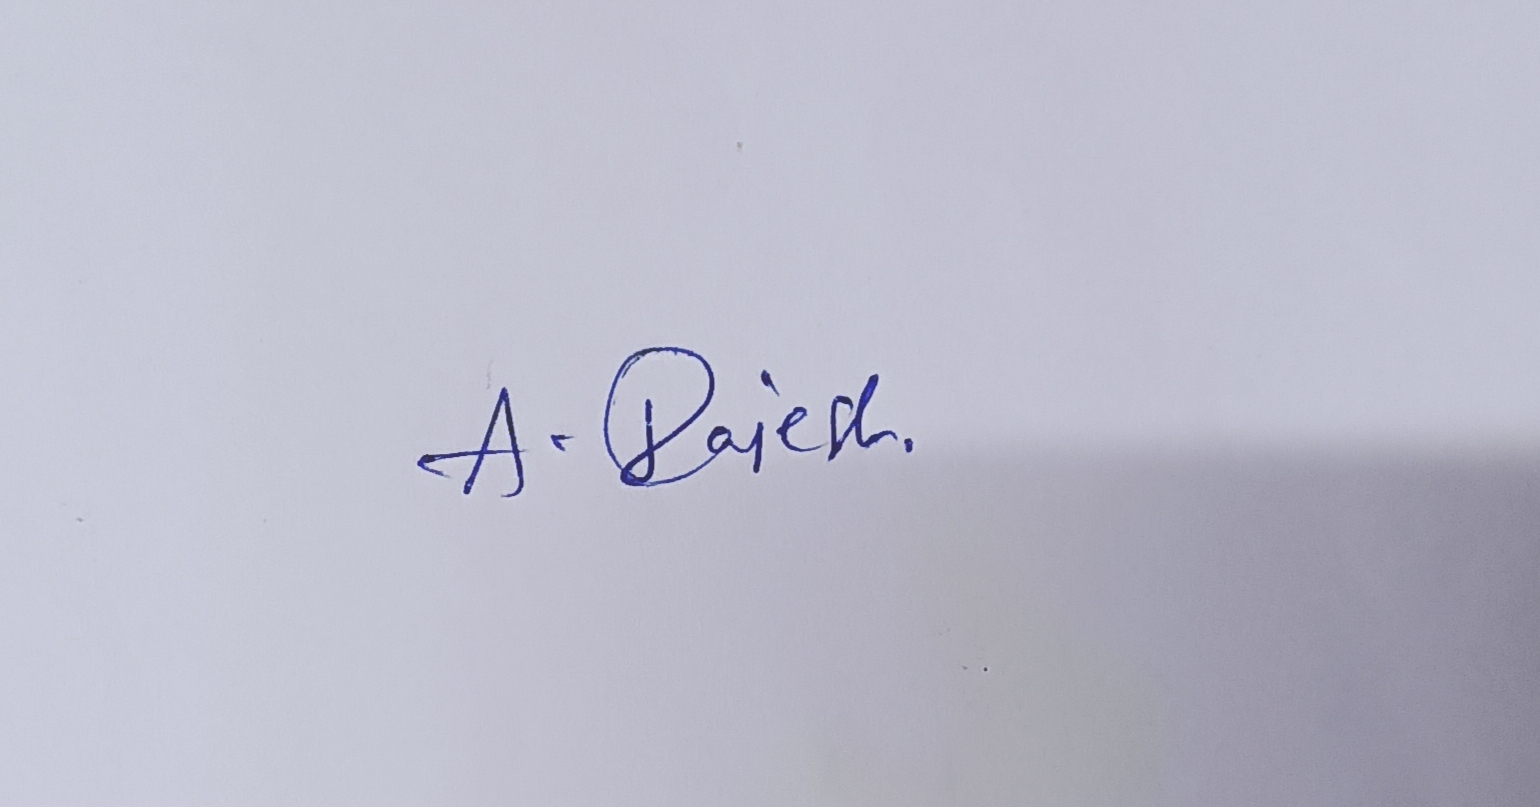 A. Rajesh.